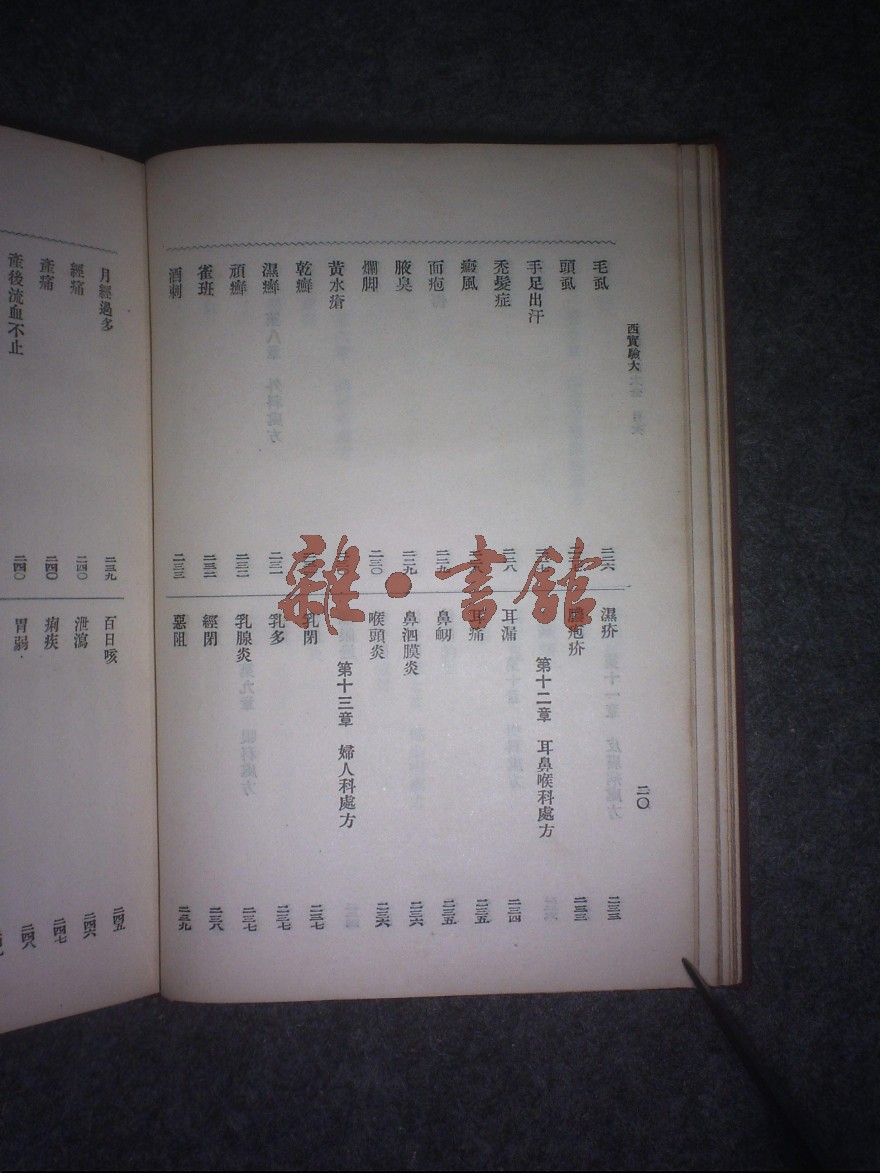 西實驗大
二〇
毛虱 二二六
頭虱
手足出汗
禿髮症
癜風
面疱 二二九
腋臭 二二九
爛脚 二三〇
黃水瘡
乾癬
濕癬 二三一
頑癬 二三二
雀班 二三二
酒刺 二三三
濕疥 二三三
膿疱疥 二三三
第十二章 耳鼻喉科處方
耳漏 二三四
耳痛 二三五
鼻衂 二三五
鼻泗膜炎 二三六
喉頭炎 二三六
第十三章 婦人科處方
乳閉 二三七
乳多 二三七
乳腺炎 二三七
經閉 二三八
惡阻 二三九
月經過多 二三九
經痛 二四〇
產痛 二四〇
產後流血不止 二四〇
百日咳 二四五
泄瀉 二四六
痢疾 二四七
胃弱 二四八
雜·書館